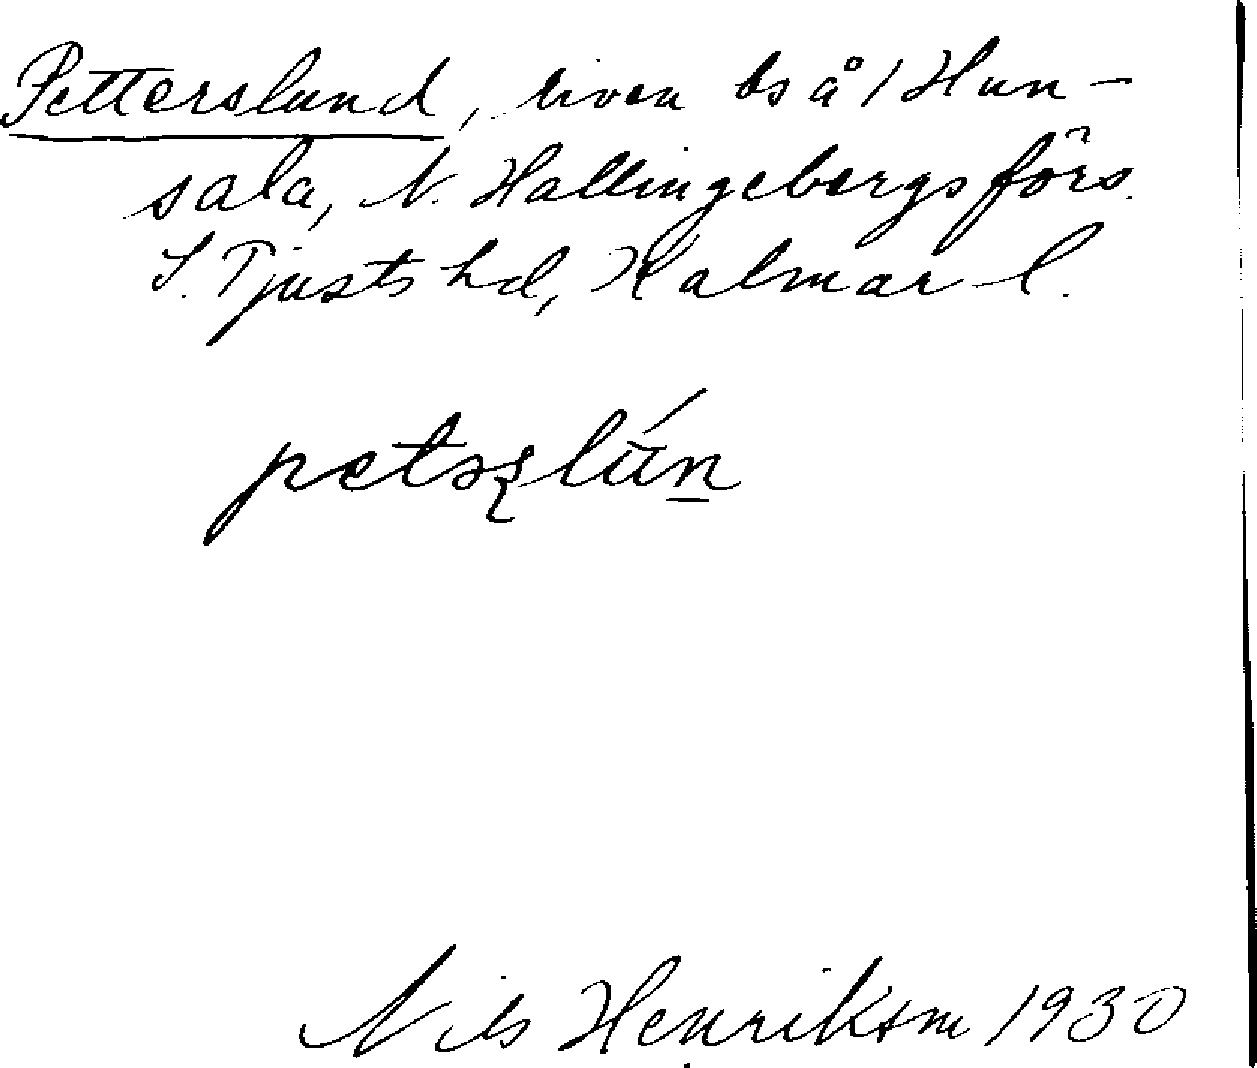 Pettersland, riven bs å 1 Hun-
sala, N. Hallingebergs förs.
S. Tjusts hd, Kalmar l.
petəʂlún
Nils Henrikson 1930